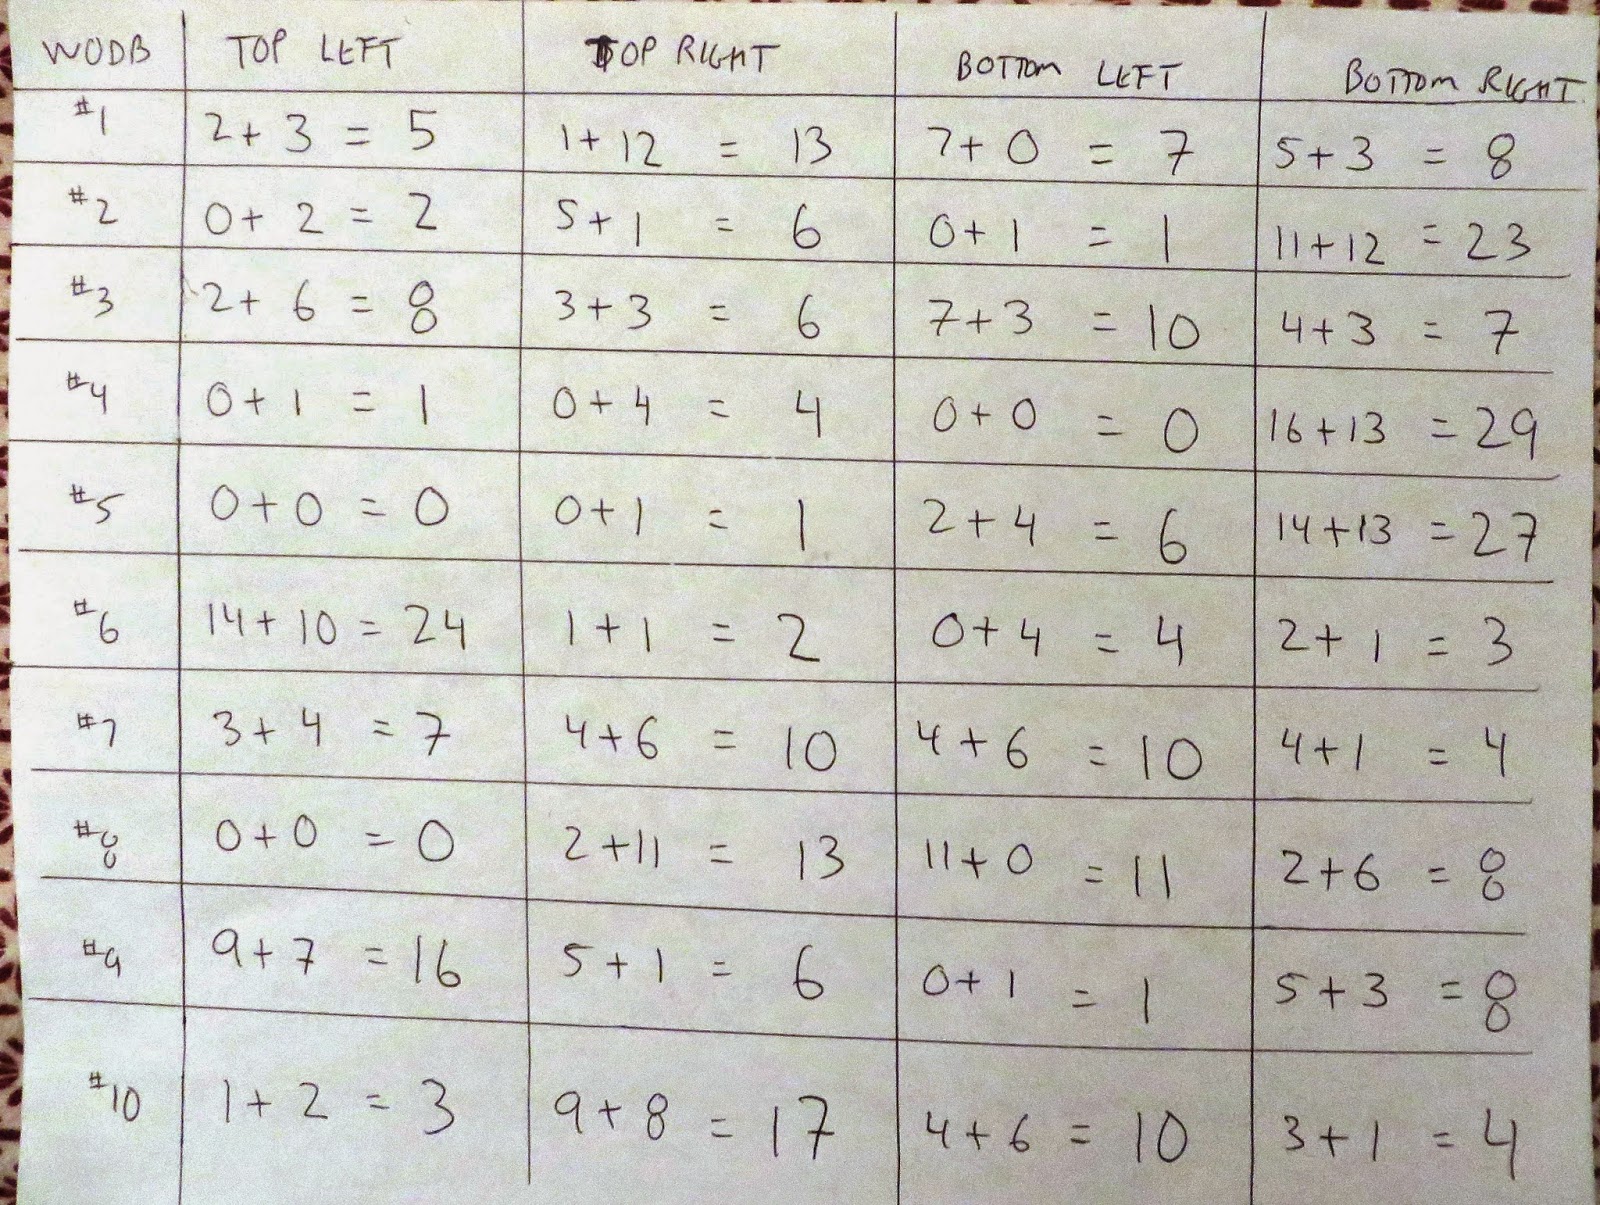 WODB TOP LEFT TOP RIGHT BOTTOM LEFT BOTTOM RIGHT
#1 2+3=5 1+12=13 7+0=7 5+3=8
#2 0+2=2 5+1=6 0+1=1 11+12=23
#3 2+6=8 3+3=6 7+3=10 4+3=7
#4 0+1=1 0+4=4 0+0=0 16+13=29
#5 0+0=0 0+1=1 2+4=6 14+13=27
#6 14+10=24 1+1=2 0+4=4 2+1=3
#7 3+4=7 4+6=10 4+6=10 4+1=4
#8 0+0=0 2+11=13 11+0=11 2+6=8
#9 9+7=16 5+1=6 0+1=1 5+3=8
#10 1+2=3 9+8=17 4+6=10 3+1=4